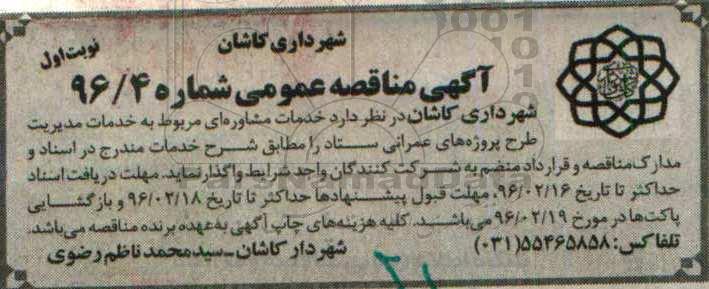 شهرداری کاشان
نوبت اول
آگهی مناقصه عمومی شماره ۹۶/۴
شهرداری کاشان در نظر دارد خدمات مشاوره‌ای مربوط به خدمات مدیریت
طرح پروژه‌های عمرانی ستاد را مطابق شرح خدمات مندرج در اسناد و
مدارک مناقصه و قرارداد منضم به شرکت کنندگان واجد شرایط واگذار نماید. مهلت دریافت اسناد
حداکثر تا تاریخ ۹۶/۰۲/۱۶، مهلت قبول پیشنهادها حداکثر تا تاریخ ۹۶/۰۲/۱۸ و بازگشایی
پاکت‌ها در مورخ ۹۶/۰۲/۱۹ می‌باشد. کلیه هزینه‌های چاپ آگهی به‌عهده برنده مناقصه می‌باشد.
تلفاکس: ۵۵۴۶۵۸۵۸(۰۳۱)
شهردار کاشان ـ سیدمحمد ناظم رضوی